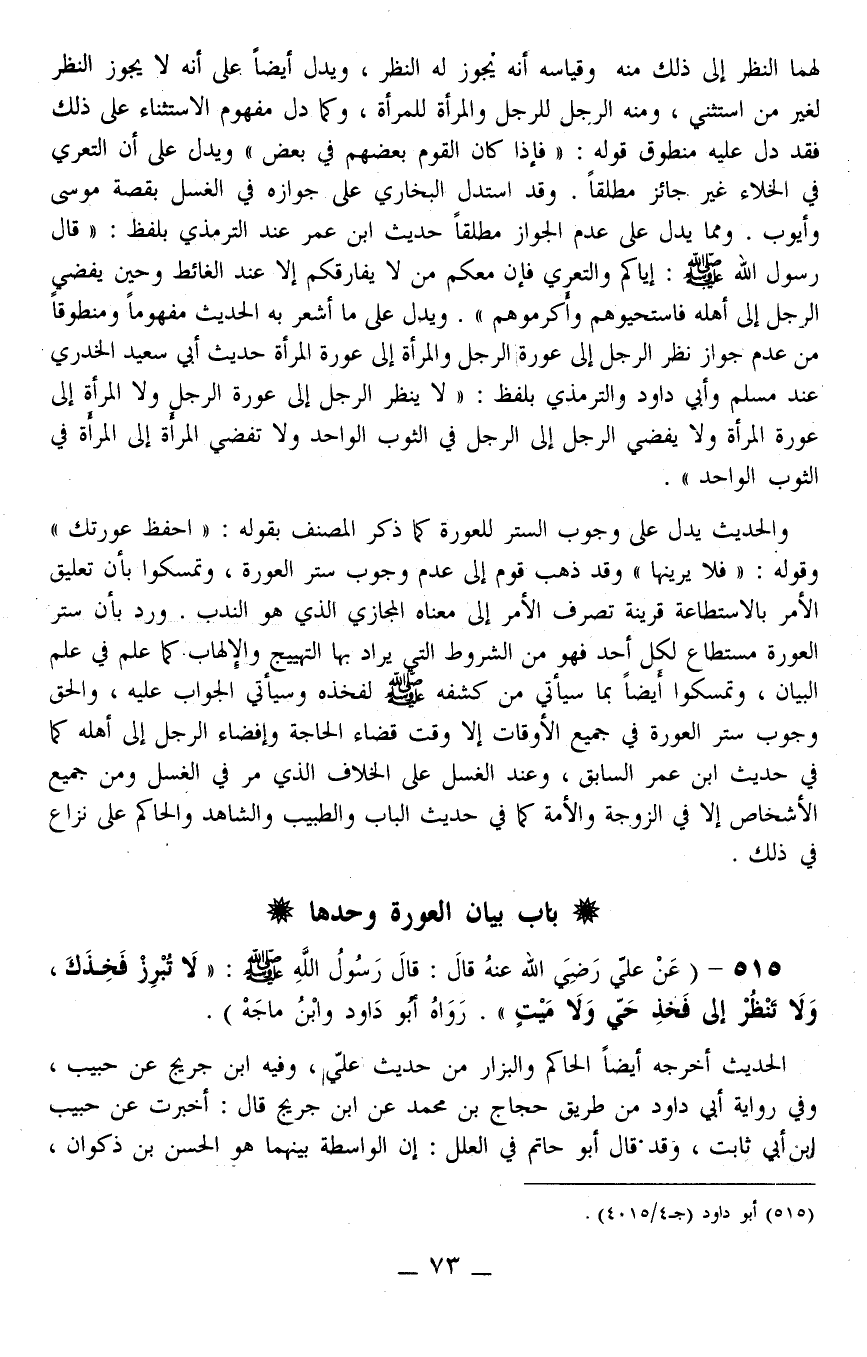 لهما النظر إلى ذلك منه وقياسه أنه يجوز له النظر ، ويدل أيضاً على أنه لا يجوز النظر
لغير من استثني ، ومنه الرجل للرجل والمرأة للمرأة ، وكما دل مفهوم الاستثناء على ذلك
فقد دل عليه منطوق قوله : « فإذا كان القوم بعضهم في بعض » ويدل على أن التعري
في الخلاء غير جائز مطلقاً . وقد استدل البخاري على جوازه في الغسل بقصة موسى
وأيوب . ومما يدل على عدم الجواز مطلقاً حديث ابن عمر عند الترمذي بلفظ : « قال
رسول الله ﷺ : إياكم والتعري فإن معكم من لا يفارقكم إلا عند الغائط وحين يفضي
الرجل إلى أهله فاستحيوهم وأكرموهم » . ويدل على ما أشعر به الحديث مفهوماً ومنطوقاً
من عدم جواز نظر الرجل إلى عورة الرجل والمرأة إلى عورة المرأة حديث أبي سعيد الخدري
عند مسلم وأبي داود والترمذي بلفظ : « لا ينظر الرجل إلى عورة الرجل ولا المرأة إلى
عورة المرأة ولا يفضي الرجل إلى الرجل في الثوب الواحد ولا تفضي المرأة إلى المرأة في
الثوب الواحد » .
والحديث يدل على وجوب الستر للعورة كما ذكر المصنف بقوله : « احفظ عورتك »
وقوله : « فلا يرينها » وقد ذهب قوم إلى عدم وجوب ستر العورة ، وتمسكوا بأن تعليق
الأمر بالاستطاعة قرينة تصرف الأمر إلى معناه المجازي الذي هو الندب . ورد بأن ستر
العورة مستطاع لكل أحد فهو من الشروط التي يراد بها التهييج والإلهاب كما علم في علم
البيان ، وتمسكوا أيضاً بما سيأتي من كشفه ﷺ لفخذه وسيأتي الجواب عليه ، والحق
وجوب ستر العورة في جميع الأوقات إلا وقت قضاء الحاجة وإفضاء الرجل إلى أهله كما
في حديث ابن عمر السابق ، وعند الغسل على الخلاف الذي مر في الغسل ومن جميع
الأشخاص إلا في الزوجة والأمة كما في حديث الباب والطبيب والشاهد والحاكم على نزاع
في ذلك .
باب بيان العورة وحدها
٥١٥ – ( عَنْ عليّ رَضِيَ الله عنهُ قالَ : قالَ رَسُولُ اللَّهِ ﷺ : « لَا تُبْرِزْ فَخِذَكَ ،
وَلَا تَنْظُرْ إلى فَخذِ حَيّ وَلَا مَيْتٍ » . رَوَاهُ أبُو دَاود وابْنُ ماجَهْ ) .
الحديث أخرجه أيضاً الحاكم والبزار من حديث عليّ ، وفيه ابن جريج عن حبيب ،
وفي رواية أبي داود من طريق حجاج بن محمد عن ابن جريج قال : أخبرت عن حبيب
ابن أبي ثابت ، وقد قال أبو حاتم في العلل : إن الواسطة بينهما هو الحسن بن ذكوان ،
(٥١٥) أبو داود (جـ٤/٤٠١٥) .
– ٧٣ –